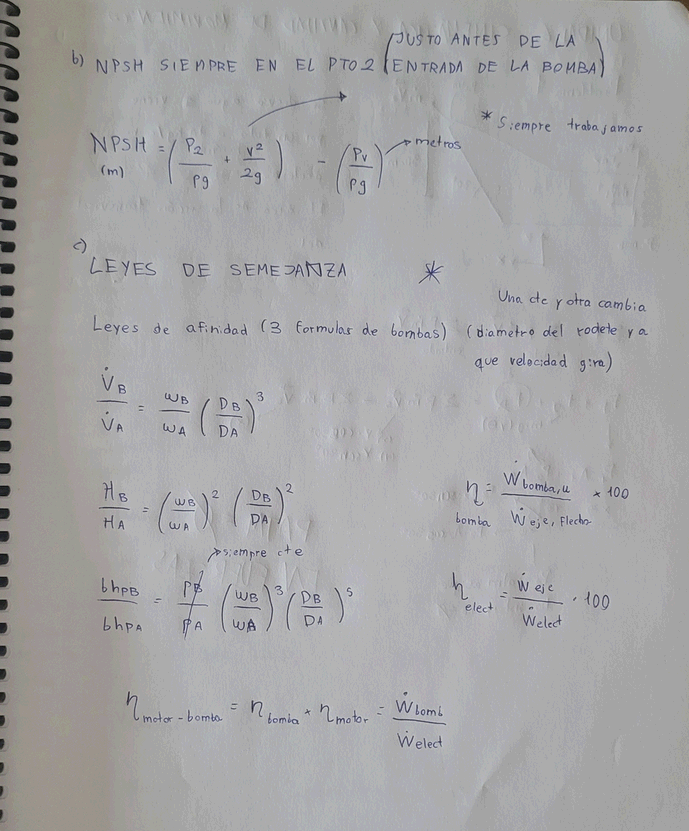 (JUSTO ANTES DE LA
b) NPSH SIEMPRE EN EL PTO 2 ENTRADA DE LA BOMBA)
* Siempre trabajamos
NPSH = (P2/ρg + v²/2g) - (Pv/ρg) → metros
(m)
c)
LEYES DE SEMEJANZA *
Una de y otra cambia
Leyes de afinidad (3 formulas de bombas) (diametro del rodete y a
que velocidad gira)
V̇B/V̇A = ωB/ωA (DB/DA)³
HB/HA = (ωB/ωA)² (DB/DA)²
η bomba = Ẇbomba,u/Ẇeje, Flecha × 100
→ siempre cte
bhpB/bhpA = ρB/ρA (ωB/ωA)³ (DB/DA)⁵
η elect = Ẇeje/Ẇelect · 100
η motor-bomba = η bomba * η motor = Ẇbomb/Ẇelect